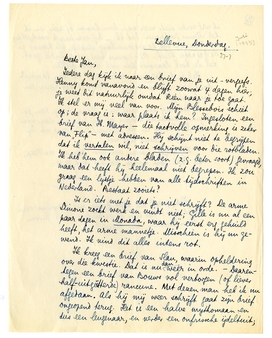 Bellevue, Donderdag.
Beste Jan,
Iedere dag kijk ik naar een brief van je uit - vergeefs.
Henny komt vanavond en blijft zowat 4 dagen hier,
je weet dit natuurlijk omdat hier naar je toe gaat.
Ik stel er mij veel van voor. Mijn
op: de vraag is: waar plaats ik hem? Ingesloten een
brief van H. Mayer - die tactvolle opmerking is zeker
van "Flip" - met adressen. Hij schijnt niet te begrijpen
dat ik vertalen wil, niet schrijven voor die rotbladen.
Ik heb hem ook andere bladen (z.g. beter soort) gevraagd,
maar dat heeft hij heelemaal niet begrepen. Ik zou
graag een lijstje hebben van alle tijdschriften in
Nederland. Bestaat zooiets?
Is er iets met je dat je niet schrijft? De arme
Simone zoekt werk en vindt niet. Gille is nu al een
paar dagen in Monaco, waar hij eerst erg gehuild
heeft, het arme mannetje. Misschien is hij nu
Ik vind dit alles intens rot.
Ik kreeg een brief van Han, waarin opheldering
over die kwestie. Dat is nu weer in orde. - Daaren-
tegen een brief van Bouws vol verborgen (of liever
half-uitgetterd) rancune. Met dezen man heb ik nu
afgedaan. Als hij mij weer schrijft gaat zijn brief
ongeopend terug. Het is een halve mythomaan en
een leugenaar, en verder een onfrissche ijdeltuit,